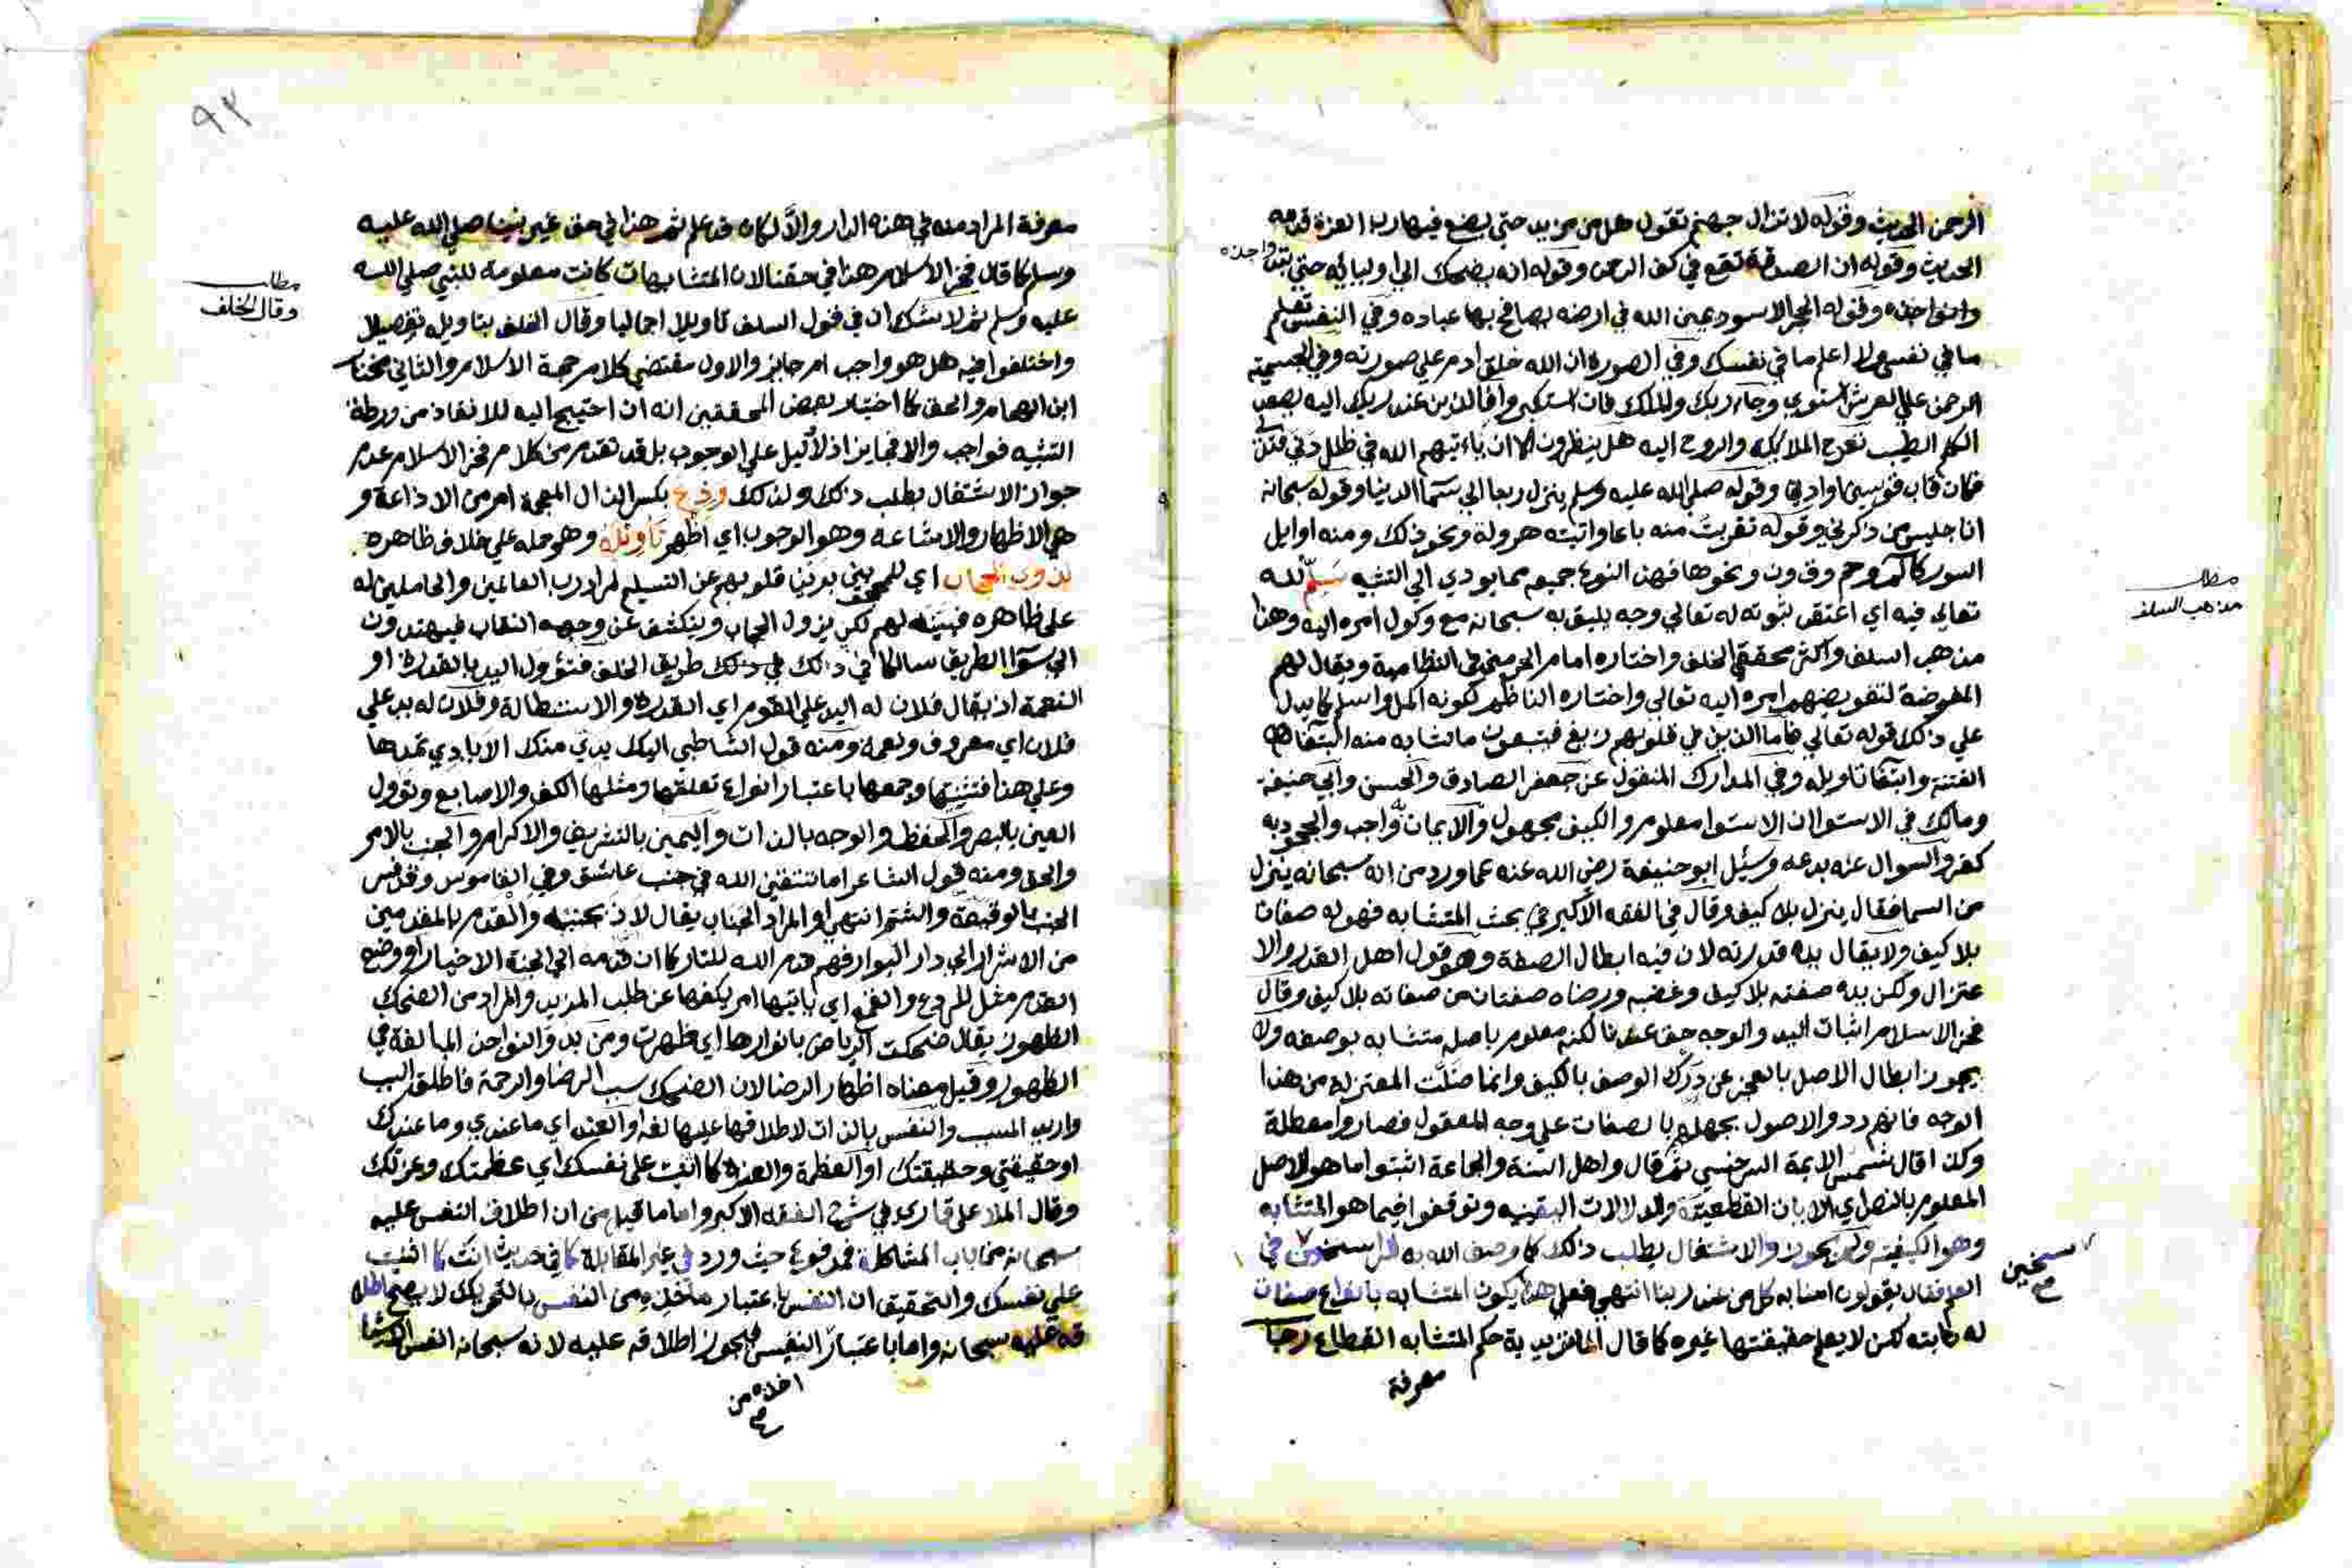 الرحمن الحديث وقوله لا تزال جهنم تقول هل من مزيد حتي يضع فيها رب العزة قدمه
الحديث وقوله ان الصدقة تقع في كف الرحمن وقوله انه يضحك الي اوليائه حتي تبدو نواجذه
وقوله الحجر الاسود يمين الله في ارضه يصافح بها عباده وفي النفس تعلم
ما في نفسي ولا اعلم ما في نفسك وفي الصورة ان الله خلق ادم علي صورته وفي الجسمية
الرحمن علي العرش استوي وجاء ربك والملك فان استكبروا فالذين عند ربك اليه يصعد
الكلم الطيب تعرج الملائكة والروح اليه هل ينظرون الا ان ياءتيهم الله في ظلل دني فتدلي
فكان قاب قوسين او ادني وقوله صلي الله عليه وسلم ينزل ربنا الي سما الدنيا وقوله سبحانه
انا جليس من ذكرني وقوله تقربت منه باعا واتيته هرولة ونحو ذلك ومنه اوايل
السور كالم وحم وق ون ونحوها فهذا النوع جميعه مما يودي الي التشبيه سلم لله
تعالي فيه اي اعتقد ثبوته له تعالي وجه يليق به سبحانه مع وكول امره اليه وهذا
مذهب السلف واكثر محققي الخلف واختاره امام الحرمين في النظامية ويقال لهم
المفوضة لتفويضهم امره اليه تعالي واختاره الناظم لكونه اكمل واسلم كما يدل
علي ذلك قوله تعالي فاما الذين في قلوبهم زيغ فيتبعون ما تشابه منه ابتغاء
الفتنة وابتغا تاويله وفي المدارك المنقول عن جعفر الصادق والحسن وابي حنيفة
ومالك في الاستوا ان الاستوا معلوم والكيف مجهول والايمان واجب والجحود به
كفر والسوال عنه بدعه وسئل ابو حنيفة رضي الله عنه عما ورد من انه سبحانه ينزل
من السما فقال ينزل بلا كيف وقال في الفقه الاكبر في بحث المتشابه فهو له صفات
بلا كيف ولا يقال يده قدرته لان فيه ابطال الصفة وهو قول اهل القدر والا
عتزال ولكن يده صفته بلا كيف وغضبه ورضاه صفتان من صفاته بلا كيف وقال
فخر الاسلام اثبات اليد والوجه حق عندنا لكنه معلوم باصله متشابه بوصفه ولا
يجوز ابطال الاصل بالعجز عن درك الوصف بالكيف وانما ضلت المعتزلة من هذا
الوجه فانهم ردوا الاصول بجهلهم بالصفات علي وجه المعقول فصاروا معطلة
وكذا قال شمس الايمة السرخسي ثم قال واهل السنة والجماعة اثبتوا ما هو الاصل
المعلوم بالنص اي الايات القطعية والدلالات اليقينيه وتوقفوا فيما هو المتشابه
وهو الكيفية ولم يجوزوا الاشتغال بطلب ذلك كما وصف الله به الراسخين في
العلم فقال يقولون امنا به كل من عند ربنا انتهي فعلي هذا يكون المتشابه بانواع صفات
له ثابته لكن لا يعلم حقيقتها غيره كما قال الماتريدية حكم المتشابه انقطاع رجا
معرفة
مطلب
مذهب السلف
سخين
٩٢
معرفة المراد منه في هذه الدار والا لكان قد علم ثم هذا في حق غير نبينا صلي الله عليه
وسلم كما قال فخر الاسلام هذا في حقنا لان المتشابهات كانت معلومة للنبي صلي الله
عليه وسلم ثم لا شك ان في قول السلف تاويلا اجماليا وقال الخلف بتاويله تفصيلا
واختلفوا فيه هل هو واجب ام جايز والاول مقتضي كلام حجة الاسلام والثاني مختار
ابن الهمام والحق كما اختيار بعض المحققين انه ان احتيج اليه للانقاذ من ورطة
التشبيه فواجب والا فجايز اذ لا دليل علي الوجوب بل قد تقدم من كلام فخر الاسلام عدم
جواز الاشتغال بطلب ذلك ولذلك وذع بكسر الذال المعجمة امر من الاذاعة و
هي الاظهار والاشاعة وهو الوجوب اي اظهر تاويله وهو حمله علي خلاف ظاهره
لذوي الحجاب اي للمحجوبين قلوبهم عن التسليم لمراد رب العالمين والحاملين له
علي ظاهره فبينه لهم لكي يزول الحجاب وينكشف عن وجهه النقاب فيهتدون
الي سوا الطريق سالكا في ذلك طريق الخلف فتوول اليد بالقدرة او
النعمة اذ يقال فلان له اليد علي القوم اي القدرة والاستطالة وفلان له يد علي
فلان اي معروف ونعمه ومنه قول الشاطبي اليك يدي منك الايادي تمدها
وعلي هذا فتثنيتها وجمعها باعتبار انواع تعلقها ومثلها الكف والاصابع وتوول
العين بالبصر والحفظ والوجه بالذات واليمين بالتشريف والاكرام والجنب بالامر
والحق ومنه قول الشاعر اما تتقين الله في جنب عاشق وفي القاموس وقد فسر
الجنب بالوقيعة والشتم انتهي او المراد الجناب يقال لاذ بجنبه والقدم بالمقدمين
من الاشرار الي دار البوار فهم قدم الله للنار كما ان قدمه الي الجنة الاخيار او وضع
القدم مثل للردع والقمع اي ياتيها امر يكفها عن طلب المزيد والمراد من الضحك
الظهور يقال ضحكت الرياض بانوارها اي ظهرت ومن بدو النواجذ المبالغة في
الظهور وقيل معناه اظهار الرضا لان الضحك سبب الرضا والرحمة فاطلق السبب
واريد المسبب والنفس بالذات لاطلاقها عليها لغة او العند اي ما عندي وما عندك
او حقيقتي وحقيقتك او العظمة والعزة كما اثنيت علي نفسك اي عظمتك وعزتك
وقال الملا علي قاري في شرح الفقه الاكبر واما ما قيل من ان اطلاق النفس عليه
سبحانه من باب المشاكلة فمدفوع حيث ورد في غير المقابلة كما في حديث انت كما اثنيت
علي نفسك والتحقيق ان النفس باعتبار ماخذه من النفس بالتحريك لا يصح اطلا
قه عليه سبحانه واما باعتبار النفيس فيجوز اطلاقه عليه لانه سبحانه انفس الاشيا
مطلب
وقال الخلف